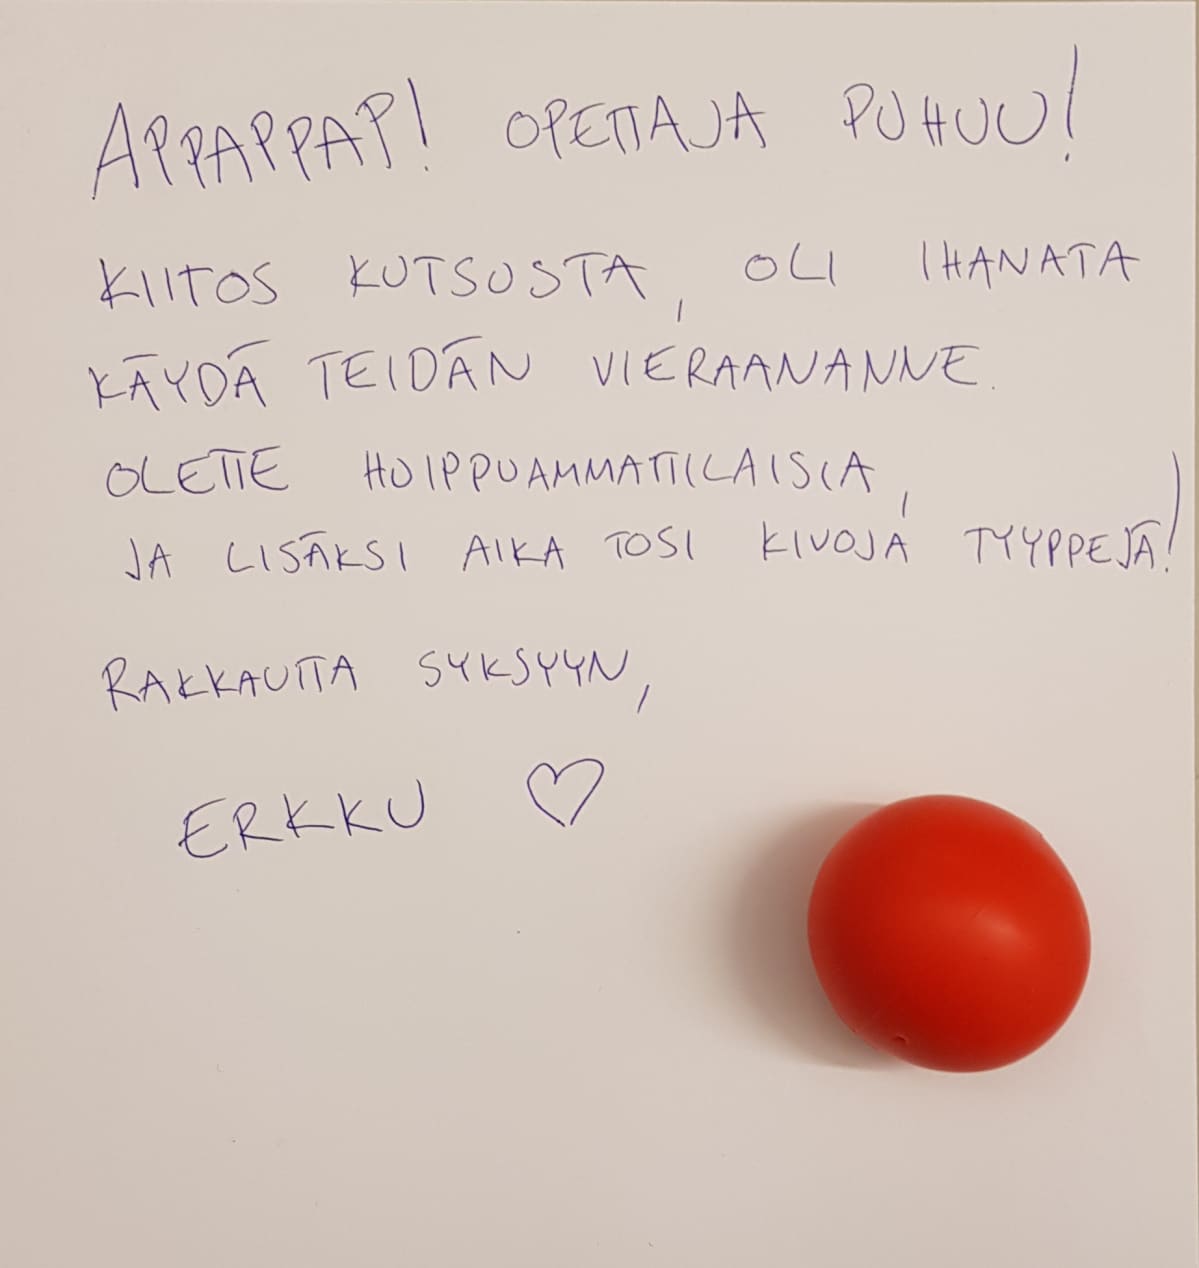 APPAPPAP! OPETTAJA PUHUU!
KIITOS KUTSUSTA, OLI IHANATA
KÄYDÄ TEIDÄN VIERAANANNE.
OLETTE HUIPPUAMMATTILAISIA,
JA LISÄKSI AIKA TOSI KIVOJA TYYPPEJÄ!
RAKKAUTTA SYKSYYN,
ERKKU ♡